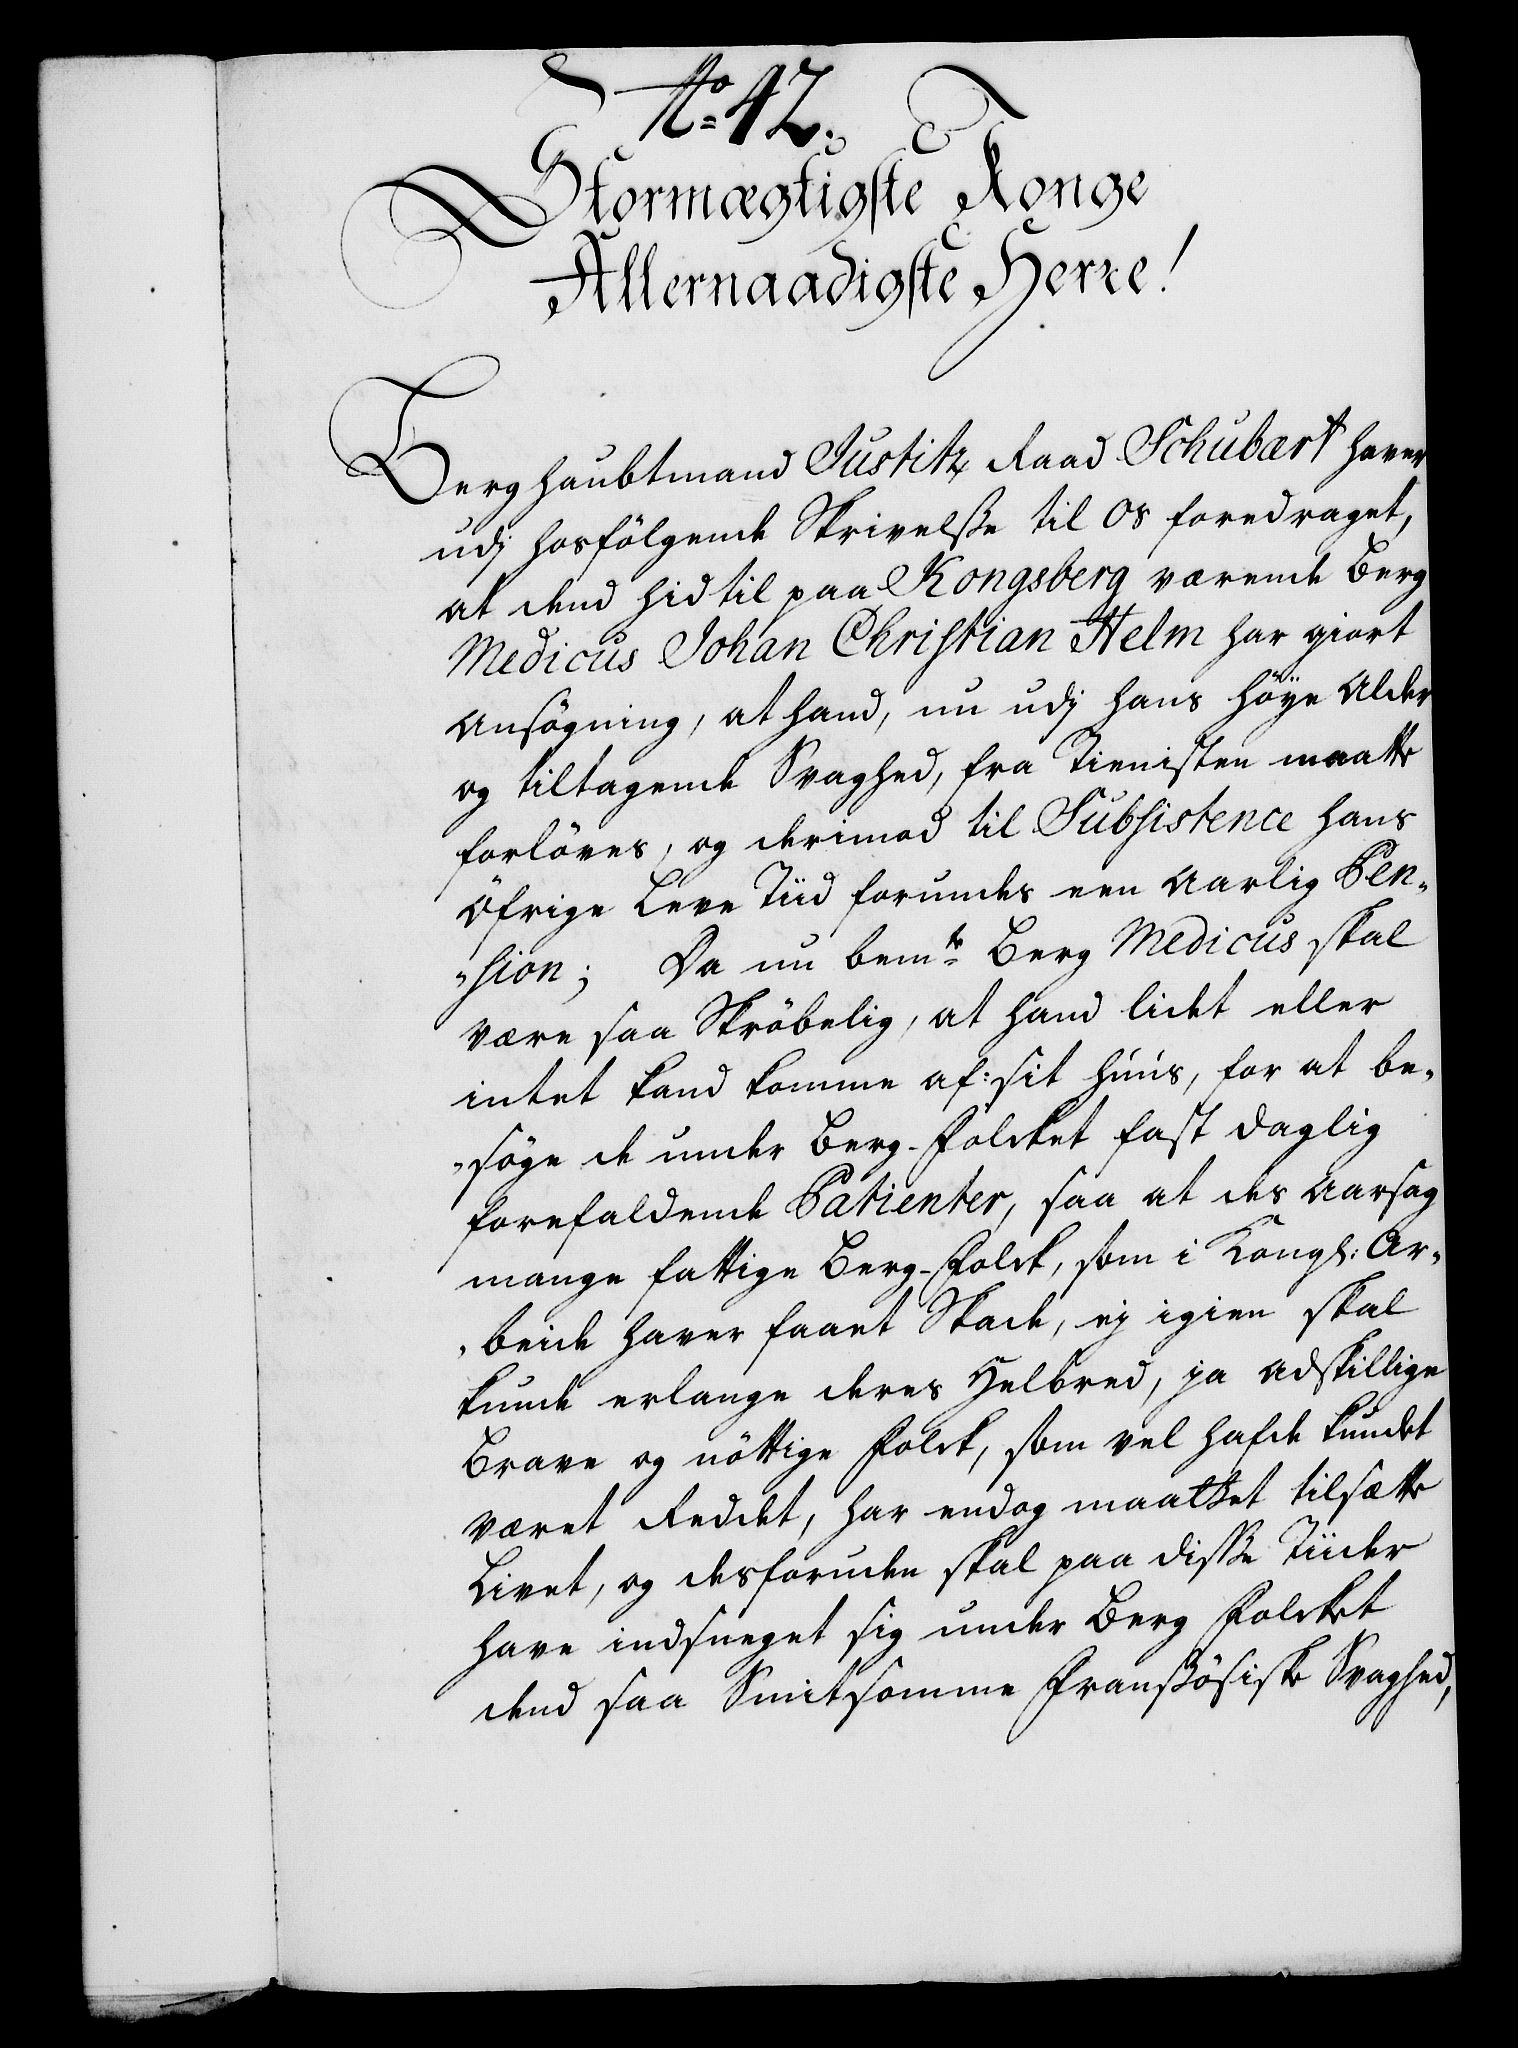 No 42.
Stormægtigste Konge
Allernaadigste Herre!
Berghaubtmand Justitz Raad Schubært haver
udj hosfölgende Skrivelsse til os foredraget,
at dend hidtil paa Kongsberg værende Berg
Medicus Johan Christian Helm har giort
Ansögning, at hand, nu udj hans höye Alder
og tiltagende Svaghed, fra Tienisten maatte
forlöves, og derimod til Subsistence hans
öfrige Leve Tiid forundes een Aarlig Pen-
-sion; Da nu bemte Berg Medicus skal
være saa Skröbelig, at hand lidet eller
intet kand komme af: sit huus, for at be-
-söge de under Berg-Folcket fast daglig
forefaldende Patienter, saa at des Aarsag
mange fattige Berg-Folck, som i Kongl: Ar-
-beide haver faaet Skade, ej igien skal
kunde erlange deres Helbred, ja adskillige
Brave og nöttige Folck, som vel hafde kundet
været Reddet, har endog maattet tilsætte
Livet, og desforuden skal paa disse Tiider
have indsneget sig under Berg Folcket
dend saa Smitsomme Franssösiske Svaghed,